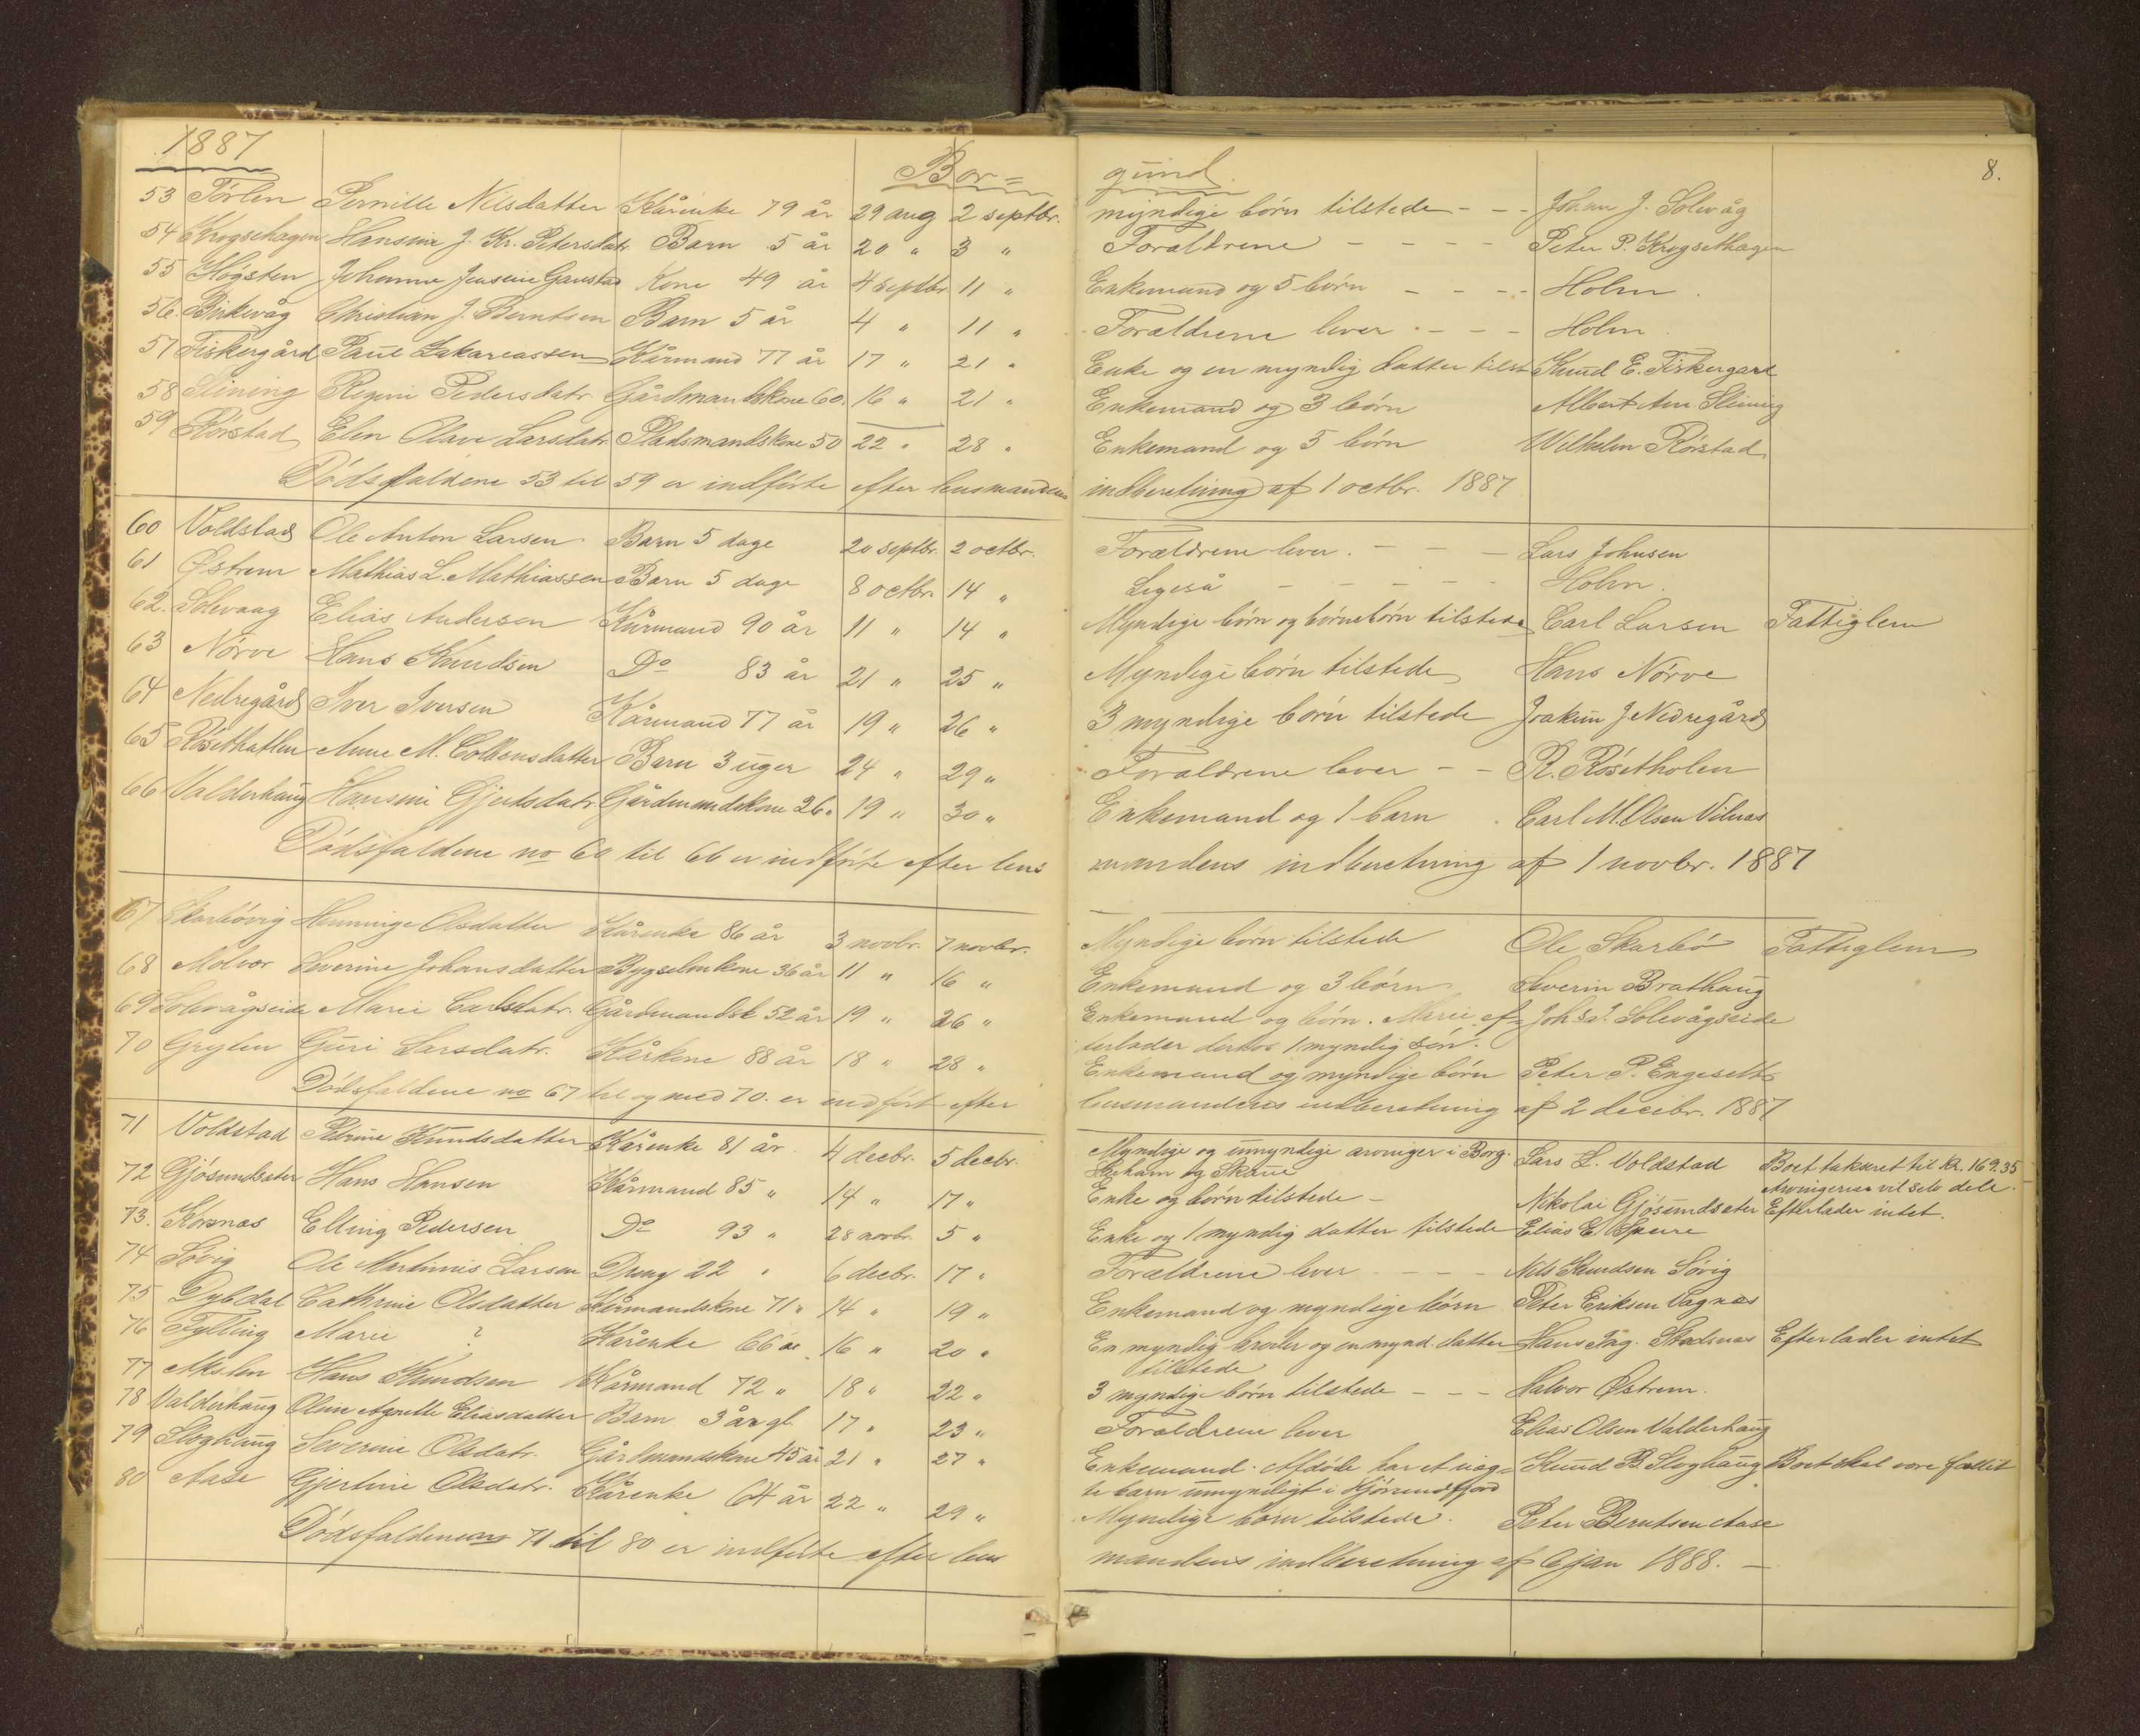 1887 Bor= gund. 8.
53 Törlen Pernille Nilsdatter Kårenke 79 år 29 aug 2 septbr. myndige börn tilstede - - - Johan J. Solevåg
54 Krogsehagen Hansine J. Kr. Petersdatr. Barn 5 år 20 " 3 " Forældrene - - - - Peter P. Krogsethagen
55 Högsten Johanne Jensine Gaustad Kone 49 år 4 septbr 11 " Enkemand og 5 börn - - - - Holm.
56. Birkevåg Christian J. Berntsen Barn 5 år 4 " 11 " Forældrene lever - - - Holm.
57 Fiskergård Paul Zakariassen Kårmand 77 år 17 " 21 " Enke og en myndig datter tilst Knud E. Fiskergård
58 Slining Regine Pedersdatr. Gårdmandskone 60. 16 " 21 " Enkemand og 3 börn Albert Slining
59 Rörstad Elen Olave Larsdatr. Pladsmandskone 50 22 " 28 " Enkemand og 5 börn Wilhelm Rörstad
Dödsfaldene 53 til 59 er indförte efter lensmandens indberetning af 1 octbr. 1887
60 Voldstad Ole Anton Larsen Barn 5 dage 20 septbr. 2 octbr. Forældrene lever. - - - Lars Johnsen
61 Østrem Mathias L. Mathiassen Barn 5 dage 8 octbr. 14 " Ligeså - - - - - Holm.
62. Solevaag Elias Andersen Kårmand 90 år 11 " 14 " Myndige börn og börnebörn tilstede Carl Larsen Fattiglem
63 Nörve Hans Knudsen Do 83 år 21 " 25 " Myndige börn tilstede Hans Nörve
64 Nedregård Iver Iversen Kårmand 77 år 19 " 26 " 3 myndige börn tilstede Joakim J Nedregård
65 Rösethatlen Anne M. Colbensdatter Barn 3 uger 24 " 29 " Forældrene lever - - R. Rösetholen
66 Valderhaug Hansine Gjertsdatr. Gårdmandskone 26 " 19 " 30 " Enkemand og 1 barn Carl M. Olsen Vilnæs
Dödsfaldene no 60 til 66 er indförte efter lens mandens indberetning af 1 novbr. 1887
67 Skarbövig Hemminge Olsdatter Kårenke 86 år 3 novbr. 7 novbr. Myndige börn tilstede Ole Skarbö Fattiglem
68 Molvær Severine Johansdatter Bygselmkone 36 år 11 " 16 " Enkemand og 3 börn Severin Brathaug
69 Solevågseide Marie Carlsdatr. Gårdmandsk 52 år 19 " 26 " Enkemand og börn. Marie ef= Johs J. Solevågseide
terlader derhos 1 myndig sön.
70 Gryten Guri Larsdatr. Kårkone 88 år 18 " 28 " Enkemand og myndige börn Peter P. Engeseth
Dödsfaldene no 67 til og med 70. er indfört efter lensmandens indberetning af 2 decbr. 1887
71 Voldstad Petrine Knudsdatter Kårenke 81 år 4 decbr. 5 decbr. Myndige og umyndige arvinger i Borg. Lars L. Voldstad Boet takseret til Kr. 169.35
Haham og Skaue Arvingerne vil selv dele.
72 Gjösundsæter Hans Hansen Kårmand 85 " 14 " 17 " Enke og börn tilstede - Nikolai Gjösundsæter Efterlader intet.
73. Korsnæs Elling Pedersen Do 93 " 28 novbr. 5 " Enke og 1 myndig datter tilstede Elias E. Sperre
74 Sövig Ole Martinus Larsen Dreng 22 " 6 decbr. 17 " Forældrene lever - - - - Nils Knudsen Sövig
75 Dybdal Cathrine Olsdatter Kårmandskone 71 " 14 " 19 " Enkemand og myndige börn Peter Eriksen Vagnes
76 Fylling Marie ? Kårenke 66 16 " 20 " En myndig broder og en mynd. datter Hans Ing. Stadsnæs Efterlader intet
tilstede
77 Akslen Hans Knudsen Kårmand 72 " 18 " 22 " 3 myndige börn tilstede - - - Halvor Østrem.
78 Valderhaug Oline Agnette Eliasdatter Barn 3 år gl 17 " 23 " Forældrene lever Elias Olsen Valderhaug
79 Sloghaug Severine Olsdatr. Gårdmandskone 45 år 21 " 27 " Enkemand. Afdöde har et uæg= Knud B. Sloghaug Boet skal være fallit
te barn umyndigt i Hjörundfjord
80 Aase Gjertine Olsdatr. Kårenke 64 år 22 " 29 " Myndige börn tilstede. Peter Berntsen Aase
Dödsfaldene no 71 til 80 er indförte efter lens mandens indberetning af 6 jan 1888. -